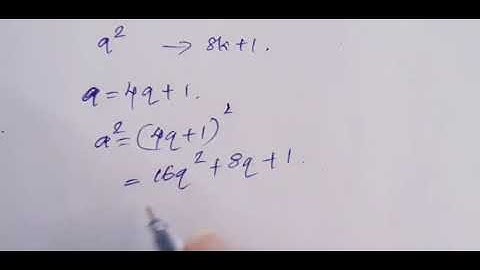 a² → 8k+1.
a = 4q+1.
a² = (4q+1)²
= 16q² + 8q + 1.